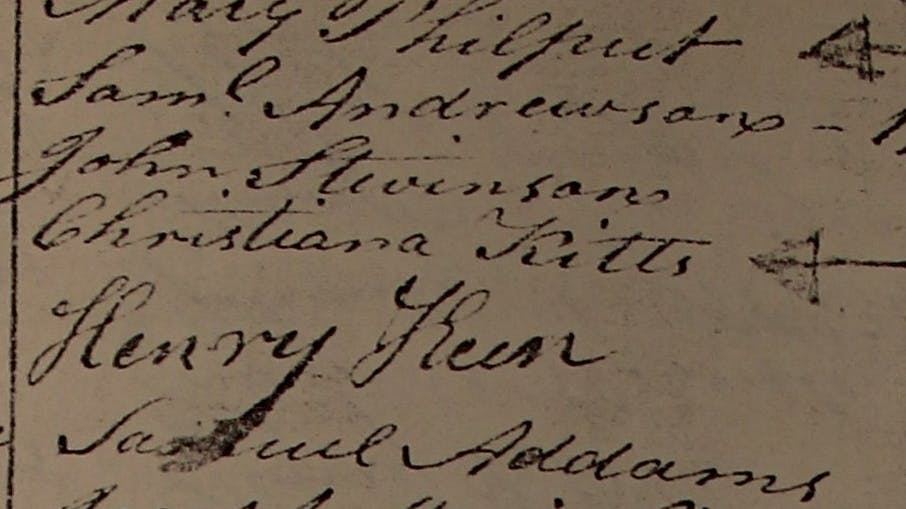 Mary Philput
Saml. Andrewson -
John Stevinson
Christiana Kitts
Henry Keen
Samuel Addams